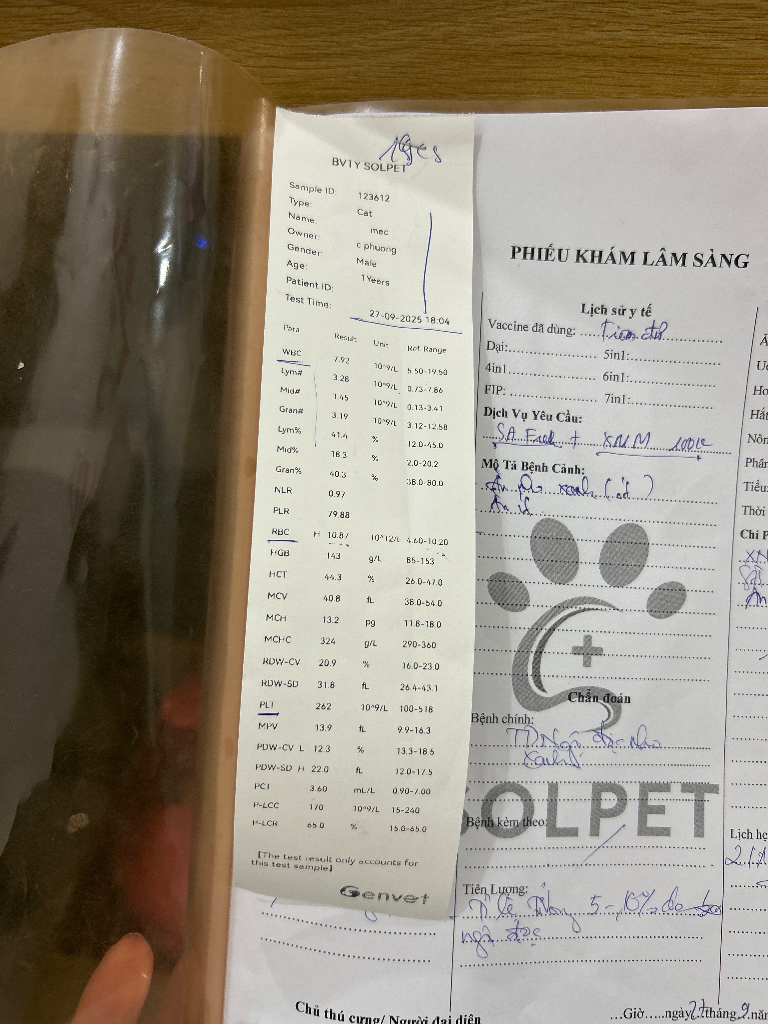 BVTY SOLPET
Sample ID: 123612
Type: Cat
Name: mec
Owner: c phuong
Gender: Male
Age: 1Years
Patient ID:
Test Time: 27-09-2025 18:04
Para Result Unit Ref. Range
WBC 7.92 10^9/L 5.50-19.50
Lym# 3.28 10^9/L 0.73-7.86
Mid# 1.45 10^9/L 0.13-3.41
Gran# 3.19 10^9/L 3.12-12.58
Lym% 41.4 % 12.0-45.0
Mid% 18.3 % 2.0-20.2
Gran% 40.3 % 38.0-80.0
NLR 0.97
PLR 79.88
RBC H 10.87 10^12/L 4.60-10.20
HGB 143 g/L 85-153
HCT 44.3 % 26.0-47.0
MCV 40.8 fL 38.0-54.0
MCH 13.2 pg 11.8-18.0
MCHC 324 g/L 290-360
RDW-CV 20.9 % 16.0-23.0
RDW-SD 31.8 fL 26.4-43.1
PLT 262 10^9/L 100-518
MPV 13.9 fL 9.9-16.3
PDW-CV L 12.3 % 13.3-18.5
PDW-SD H 22.0 fL 12.0-17.5
PCT 3.60 mL/L 0.90-7.00
P-LCC 170 10^9/L 15-240
P-LCR 65.0 % 15.0-65.0
[The test result only accounts for
this test sample]
Genvet
PHIẾU KHÁM LÂM SÀNG
Lịch sử y tế
Vaccine đã dùng:
Dại: 5in1:
4in1 6in1:
FIP: 7in1:
Dịch Vụ Yêu Cầu:
SA + XNM
Mô Tả Bệnh Cảnh:
Ăn xanh
Ăn ít
Chẩn đoán
Bệnh chính:
nho
xanh
SOLPET
Bệnh kèm theo:
Tiên Lượng:
Tỉ lệ 5-10% do
ngộ độc
Chủ thú cưng/ Người đại diện
...Giờ.....ngày 27 tháng 9 năm
Chi P
XN
Lịch hẹ